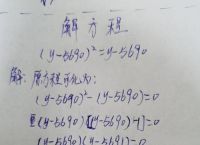 解方程
(y-5690)²=y-5690
解:原方程可化为:
(y-5690)²-(y-5690)=0
(y-5690)[(y-5690)-1]=0
(y-5690)(y-5691)=0